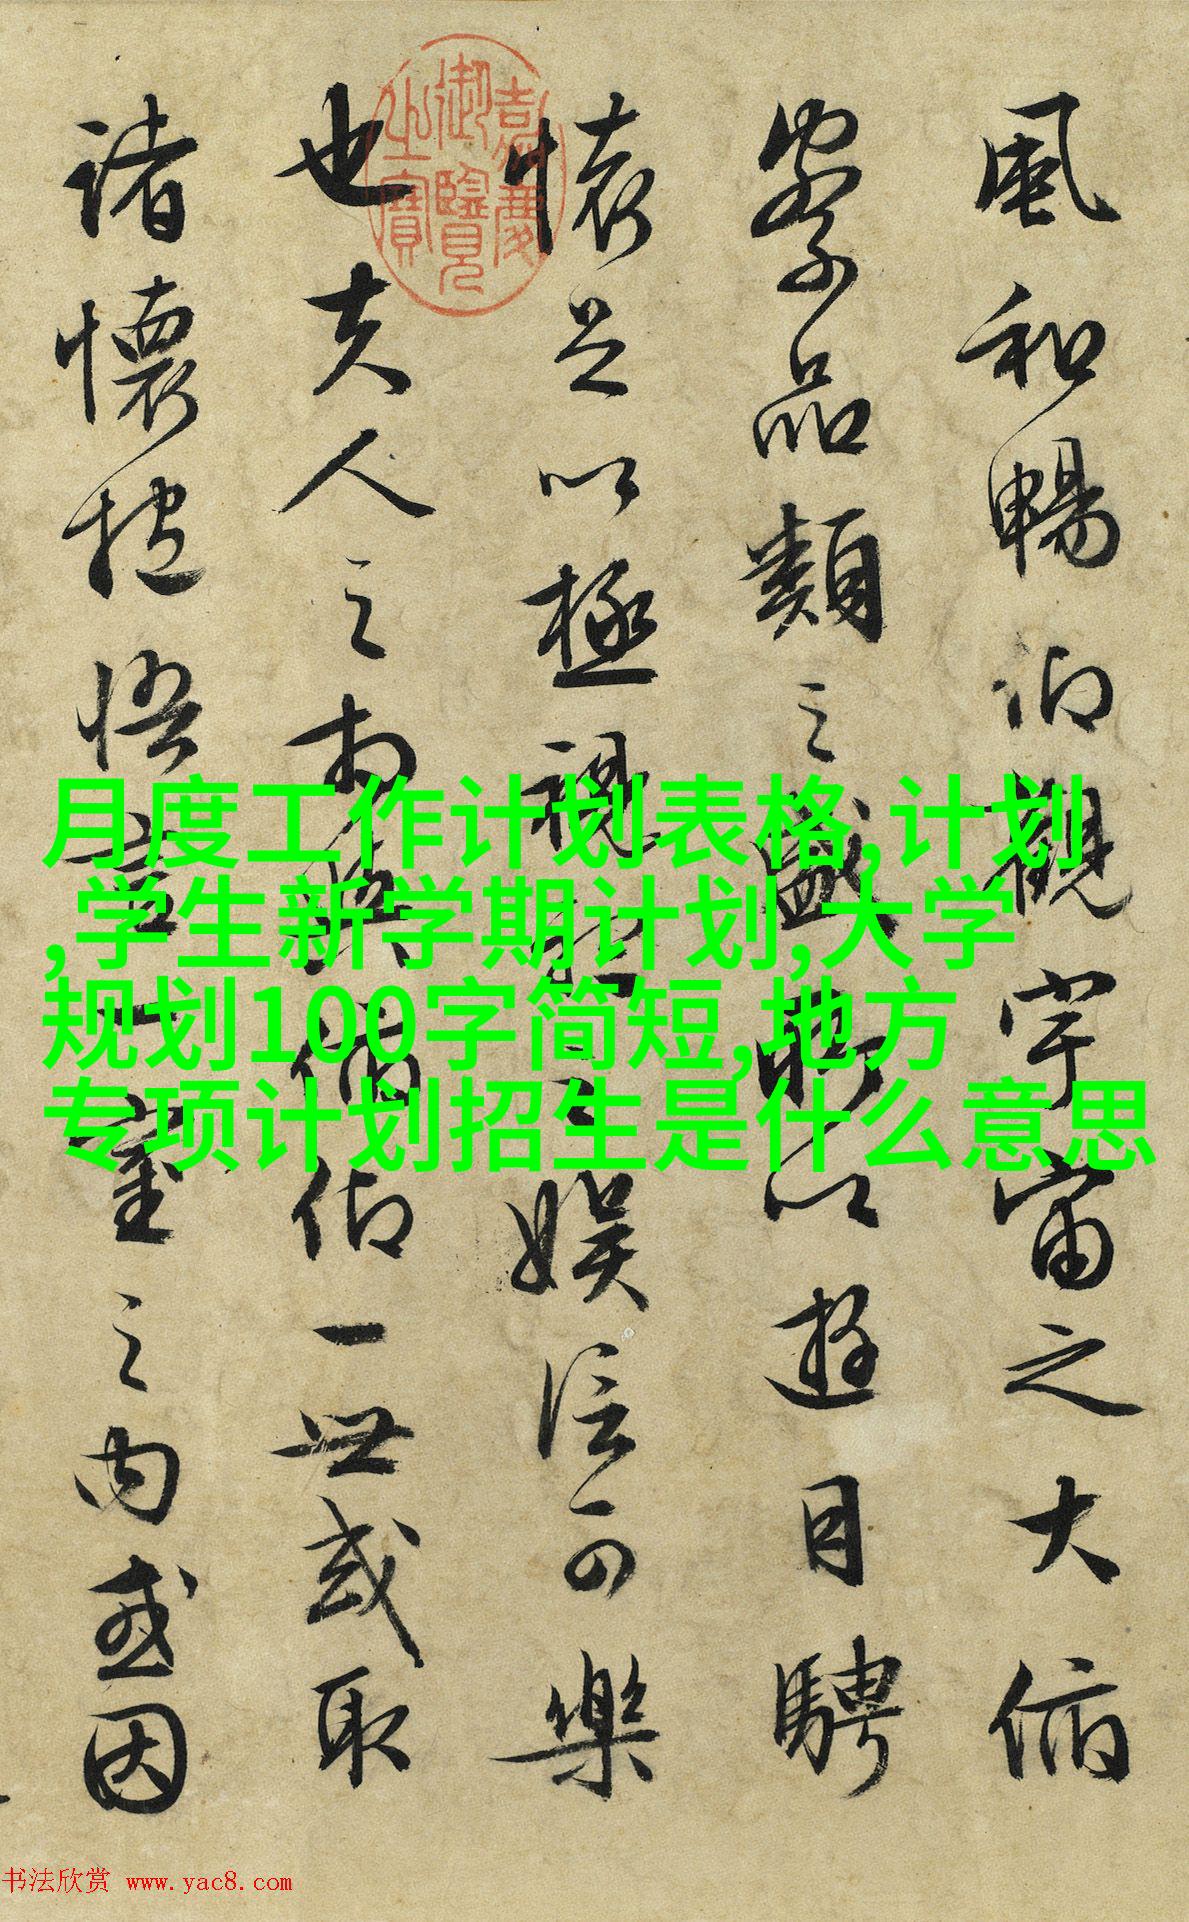 風和暢仰觀宇宙之大俯
察品類之盛所以遊目騁
懷足以極視聽之娛信可樂
也夫人之相與俯仰一世或取
諸懷抱悟言一室之內或因
嘉慶
御覽
之寶
月度工作计划表格,计划
,学生新学期计划,大学
规划100字简短,地方
专项计划招生是什么意思
书法欣赏 www.yac8.com